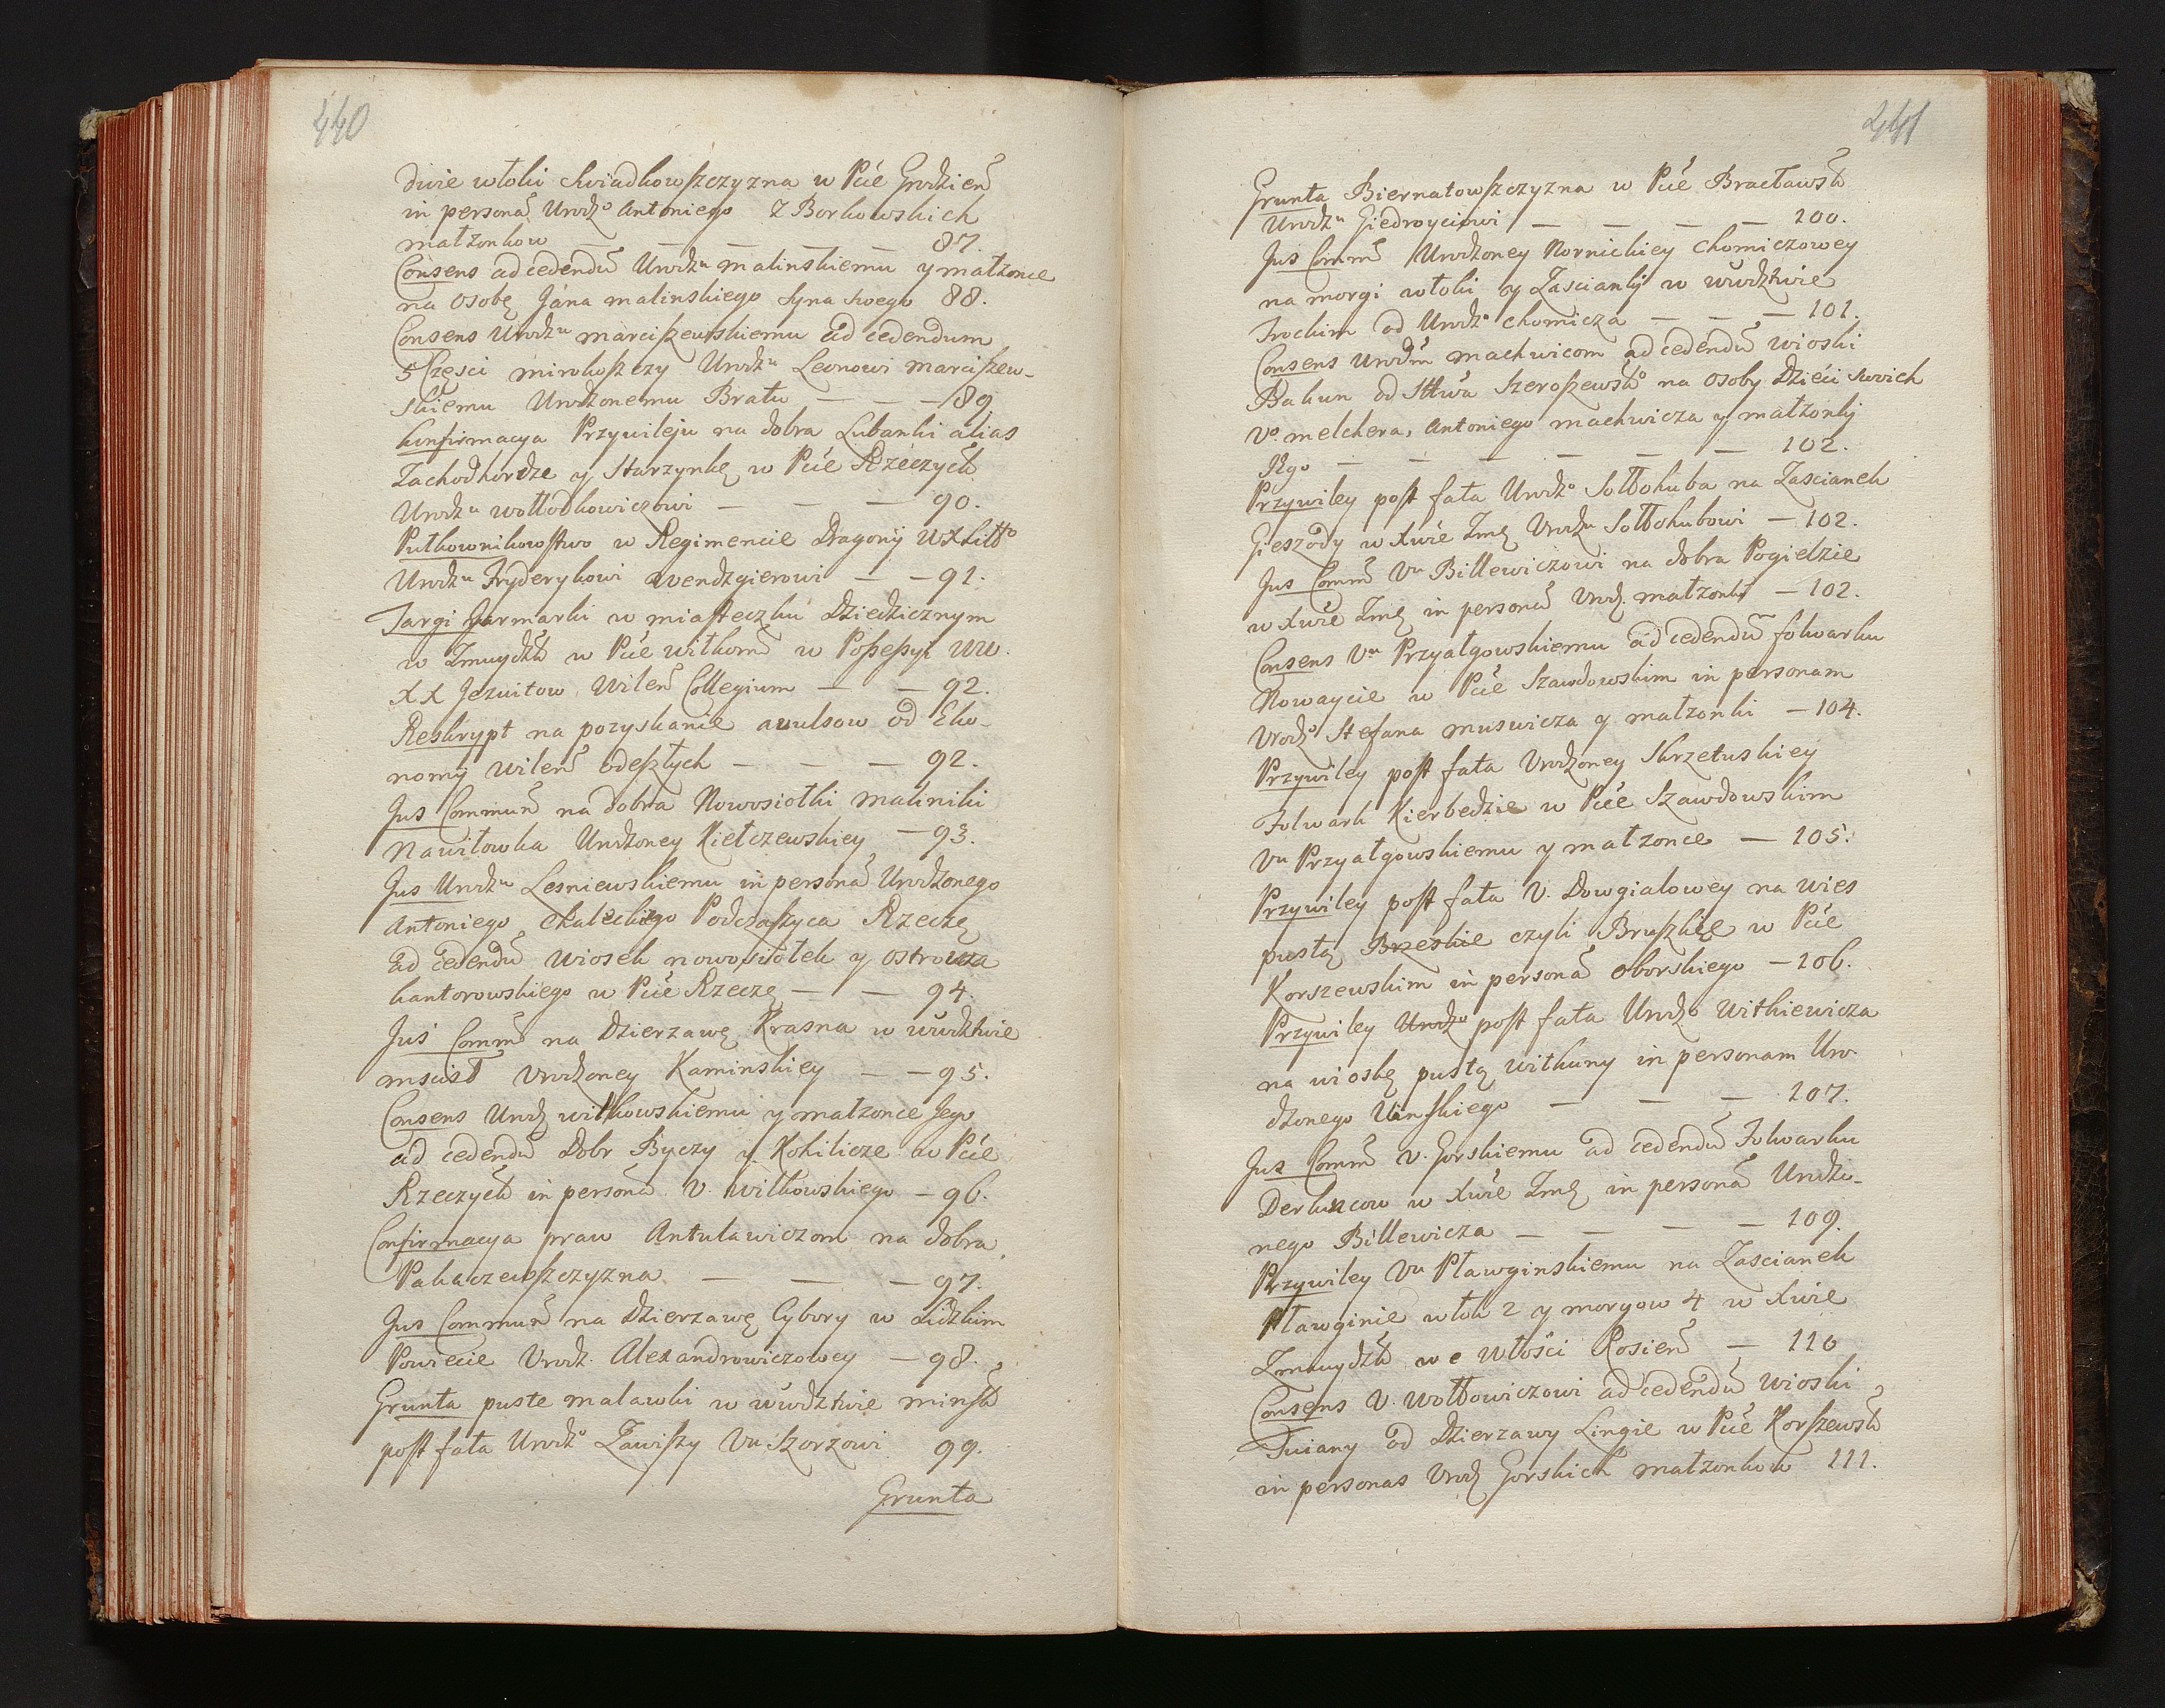 440
dwie włoki Swiadkowszczyzna w Pcie Grodzień
in personã Urodzo Antoniego z Borkowskich
małzonkow — — — — — 87.
Consens ad cedendũ Urodzu Malinskiemu y małzonce
na osobę Jána Malinskiego Syna swego 88.
Consens Urodzu Marciszewskiemu ad cedendum
5 Częsci Urodzu Leonowi Marciszew-
skiemu Urodzonemu Bratu — — — 89
Konfirmacya Przywileju na dobra Lubanki alias
Zachodhordze y Starzynkę w Pcie Rzeczyck
Urodzu Wołłodkowiczowi — — — 90.
Pułkownikowstwo w Regimencie Dragonij WXLitto
Urodzu Fryderykowi Avendzgierowi — — 91.
Targi Jarmarki w miasteczku Dziedzicznym
w Zmuydzk w Pcie Wiłkom w Possessyi WW.
XX Jezuitow Wileń Collegium — — 92.
Reskrypt na pozyskanie avulsow od Eko-
nomij Wileń odeszłych — — — 92.
Jus Commun na dobra Nowosiołki Maliniki
Nawiłowka Urodzoney Kiełczewskiey — 93.
Jus Urodzu Lesniewskiemu in personã Urodzonego
Antoniego Chaleckiego Podczaszyca Rzeczę
ad cedendũ Wiosek nowosiołek y ostrowa
kantorowskiego w Pcie Rzeczę — — 94.
Jus Comm na Dzierzawę Krasna w Wwdztwie
Mscisł Urodzoney Kaminskiey — — 95.
Consens Urodz Witkowskiemu y małzonce Jego
ad cedendũ Dobr Byczy y Kohilicze w Pcie
Rzeczyck in personã V. Witkowskiego — 96.
Confirmacya praw Antuławiczom na dobra
Pakaczewszczyzna — — — 97.
Jus Commun na Dzierzawę Cybory w Lidzkim
Powiecie Urodz. Alexandrowiczowey — 98.
Grunta puste Malawki w Wwdztwie Minsk
post fata Urodzo Zawiszy Vu Szorzowi 99.
Grunta
441
Grunta Biernatowszczyzna w Pcie Bracławsk
Urodzu Giedroyciowi — — — — 100.
Jus Comm Urodzoney Nornickiey Chomiczowey
na morgi włoki y Zascianki w Wwdztwie
Trockim od Urodzo Chomicza — — — 101.
Consens Urodzm Machwicom ad cedendũ Wioski
Bakun od Sttwa Szeroszewsko na osoby Dzieci swoich
Vo Melchera, Antoniego Machwicza y małzonki
Jego — — — — — — 102.
Przywiley post fata Urodzo Sołłohuba na Zascianek
Gieszody w Xwie Zmę Urodzu Sołłohubowi — 102.
Jus Comm Vu Billewiczowi na dobra Pogiedzie
w Xwie Zmę in personã Urodz. małzonki — 102.
Consens Vu Przyałgowskiemu ad cedendũ folwarku
Nowaycie w Pcie Szawdowskim in personam
Urodzo Stefana Muswicza y małzonki — 104.
Przywiley post fata Urodzoney Skrzetuskiey
Folwark Kierbedzie w Pcie Szawdowskim
Vu Przyałgowskiemu y małzonce — 105.
Przywiley post fata V. Dowgiałowey na wies
pustą Brzeskie czyli Bruszkie w Pcie
Korszewskim in personã Oborskiego — 106.
Przywiley Urodzu post fata Urodzo Witkiewicza
na wioskę pustą Witkuny in personam Uro-
dzonego — — — 107.
Jus Comm V. Gorskiemu ad cedendũ Folwarku
Derkincow w Xwie Zmę in personã Urodzo-
nego Billewicza — — — — 109.
Przywiley Vu Pławginskiemu na Zascianek
Pławginie włok 2 y morgow 4 w Xwie
Zmuydzk we Włości Rosień — 110
Consens V. Wołłowiczowi ad cedendũ Wioski
Twiany od Dzierzawy Lingie w Pcie Korszewsk
in personas Urodz Gorskich małzonkow 111.